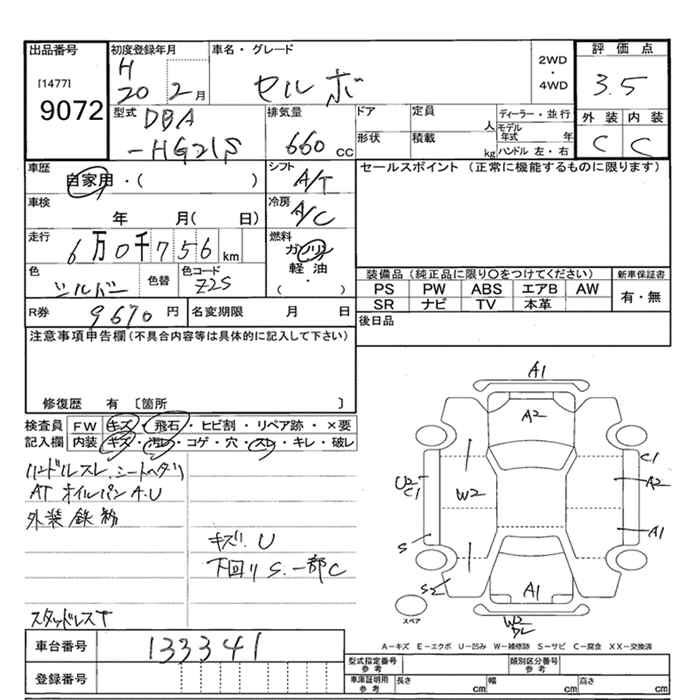 出品番号 初度登録年月 車名・グレード 2WD・4WD 評価点
[1477] H
9072 20 2月 セルボ 3.5
型式 排気量 ドア 定員 人 ディーラー・並行 外装 内装
DBA 660cc 形状 積載 kg モデル年式 年 C C
-HG21S ハンドル 左・右
車歴 シフト セールスポイント (正常に機能するものに限ります)
自家用・( ) A/T
車検 冷房
年 月( 日) A/C
走行 燃料
6万0千756km ガソリン
色 色替 色コード 軽油
シルバー Z2S ( ・ )
装備品 (純正品に限り○をつけてください) 新車保証書
PS PW ABS エアB AW 有・無
SR ナビ TV 本革
R券 9670円 名変期限 月 日 後日品
注意事項申告欄(不具合内容等は具体的に記入して下さい)
修復歴 有 〔箇所 〕
検査員 FW キズ・飛石・ヒビ割・リペア跡・×要
記入欄 内装 キズ・汚レ・コゲ・穴・スレ・キレ・破レ
ハンドルスレ、シートヘタリ
AT オイルパン A.U
外装鉄粉
キズ、U
下回りS.一部C
スタッドレスT
A1
A2
C1
U2
C1
A2
W2
A1
S
S2
A1
W2
スペア
A-キズ E-エクボ U-凹み W-補修跡 S-サビ C-腐食 XX-交換済
車台番号 133341
登録番号
型式指定番号 参考 類別区分番号 参考
車庫証明用 参考 長さ cm 幅 cm 高さ cm